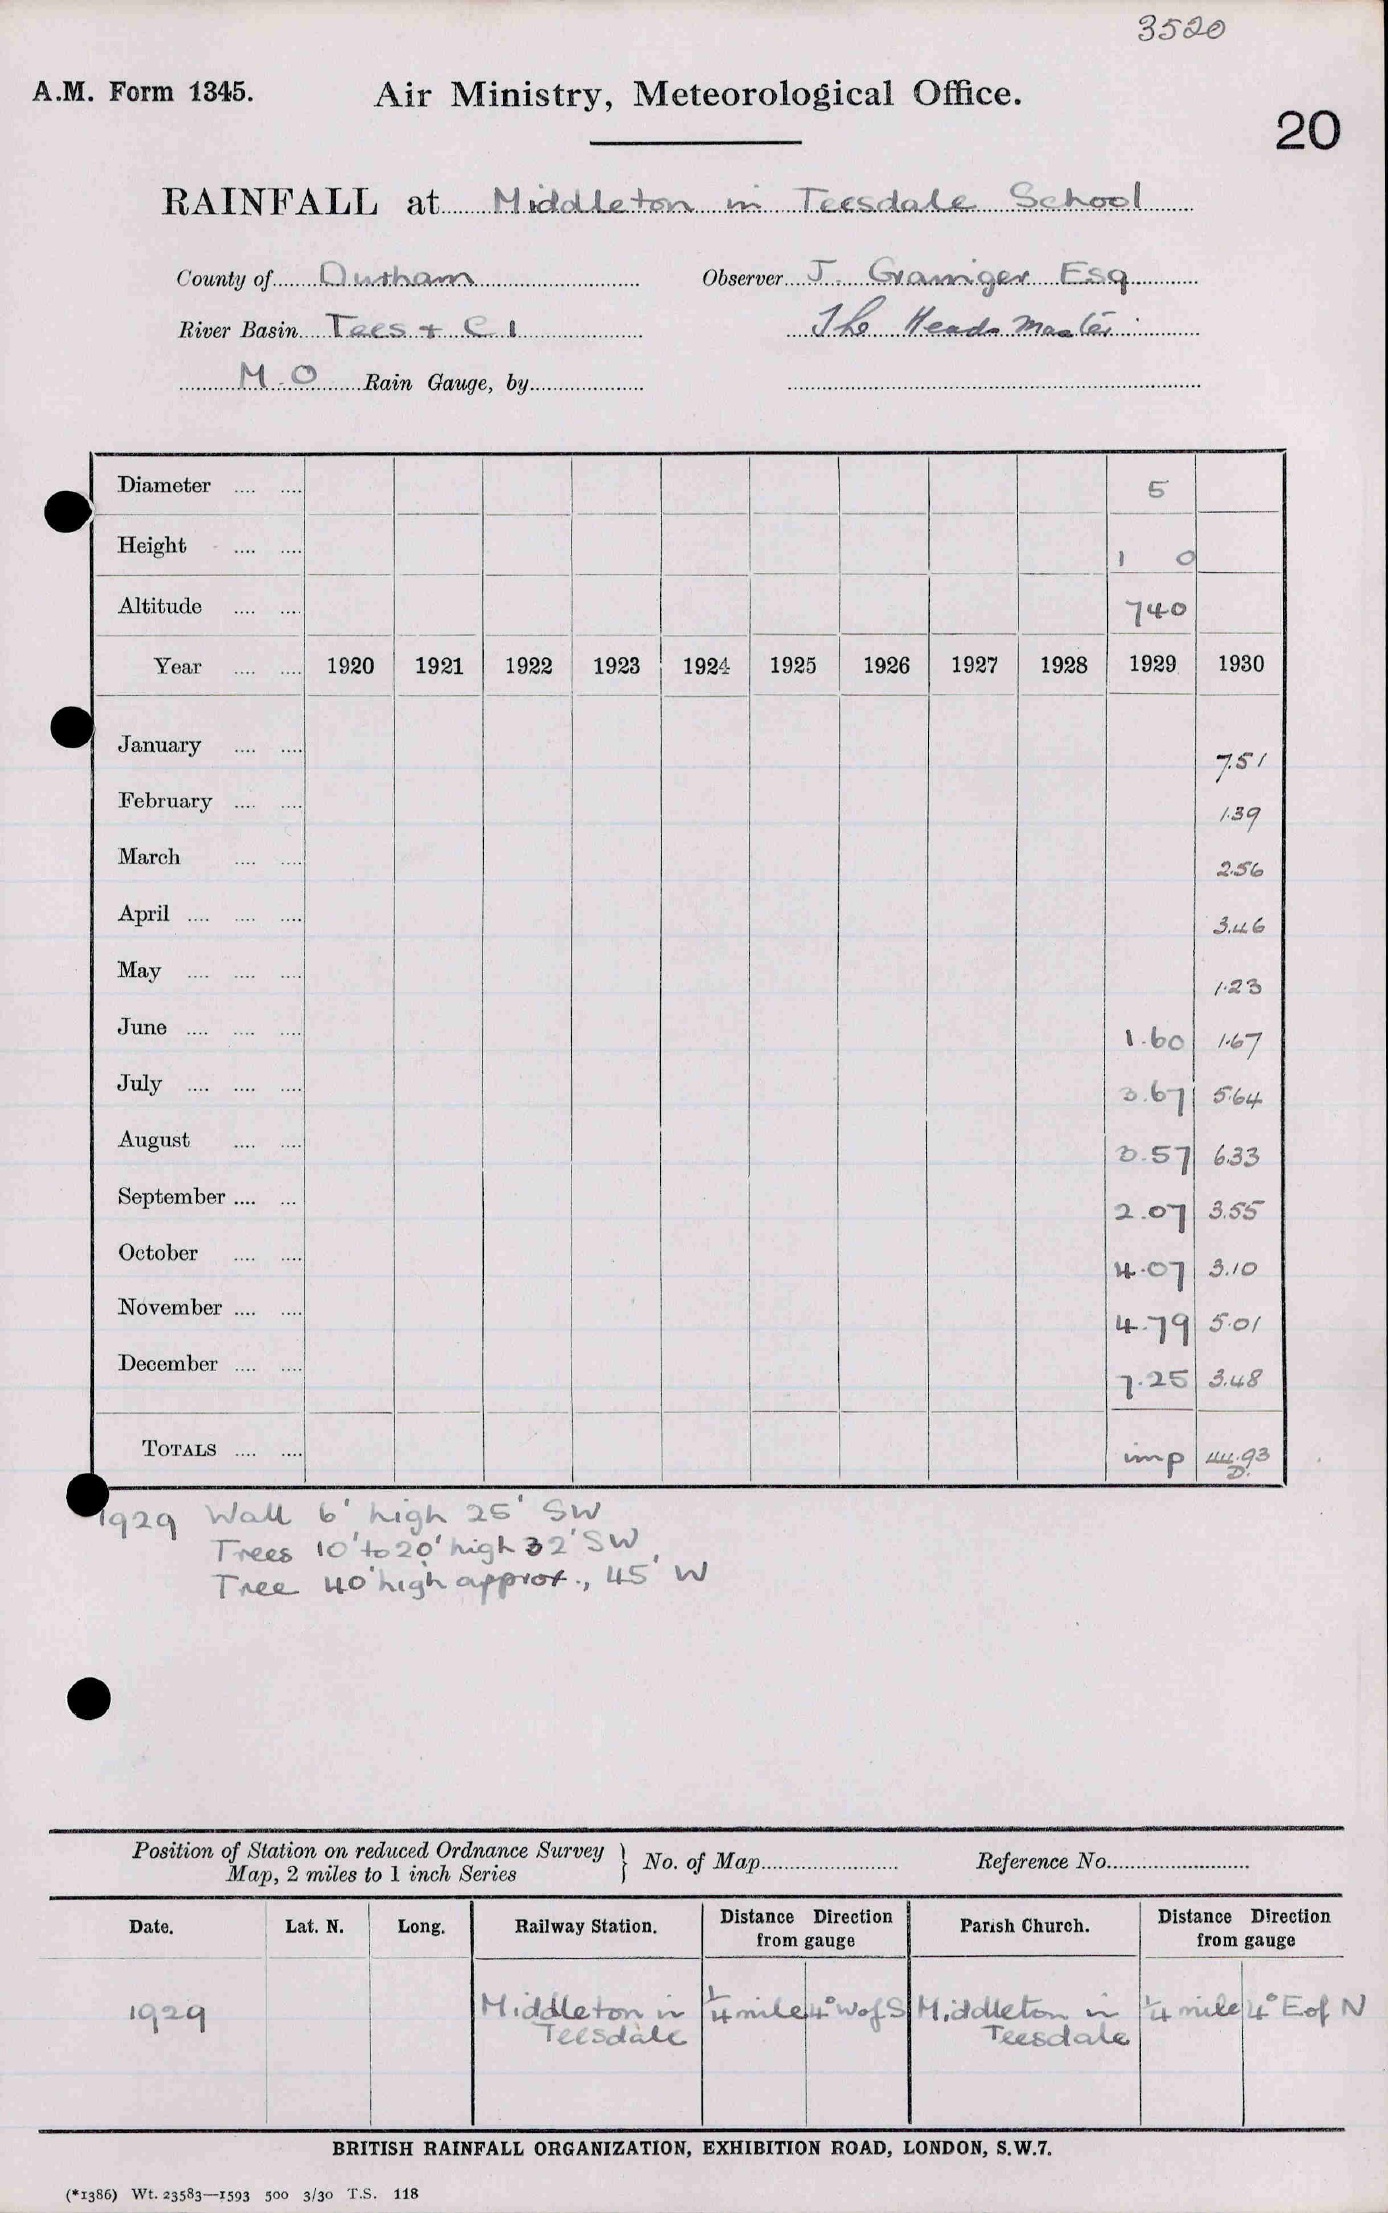 3520
A.M. Form 1345.
Air Ministry, Meteorological Office.
20
RAINFALL at Middleton in Teesdale School
County of Durham Observer J. Grainger Esq
River Basin Tees + C 1 The Head Master
M.O Rain Gauge, by
Diameter .... .... 5
Height .... .... 1 0
Altitude .... .... 740
Year .... .... 1920 1921 1922 1923 1924 1925 1926 1927 1928 1929 1930
January .... .... 7.51
February .... .... 1.39
March .... .... 2.56
April .... .... .... 3.46
May .... .... .... 1.23
June .... .... .... 1.60 1.67
July .... .... .... 3.67 5.64
August .... .... 3.57 6.33
September .... ... 2.07 3.55
October .... .... 4.07 3.10
November .... .... 4.79 5.01
December .... .... 7.25 3.48
TOTALS .... .... imp 44.93
D.
1929 Wall 6' high 25' SW
Trees 10' to 20' high 32' SW
Tree 40' high approx., 45' W
Position of Station on reduced Ordnance Survey
Map, 2 miles to 1 inch Series } No. of Map Reference No.
Date. Lat. N. Long. Railway Station. Distance Direction from gauge Parish Church. Distance Direction from gauge
1929 Middleton in Teesdale 1/4 mile 4° W of S Middleton in Teesdale 1/4 mile 4° E of N
BRITISH RAINFALL ORGANIZATION, EXHIBITION ROAD, LONDON, S.W.7.
(*1386) Wt. 23583—1593 500 3/30 T.S. 118